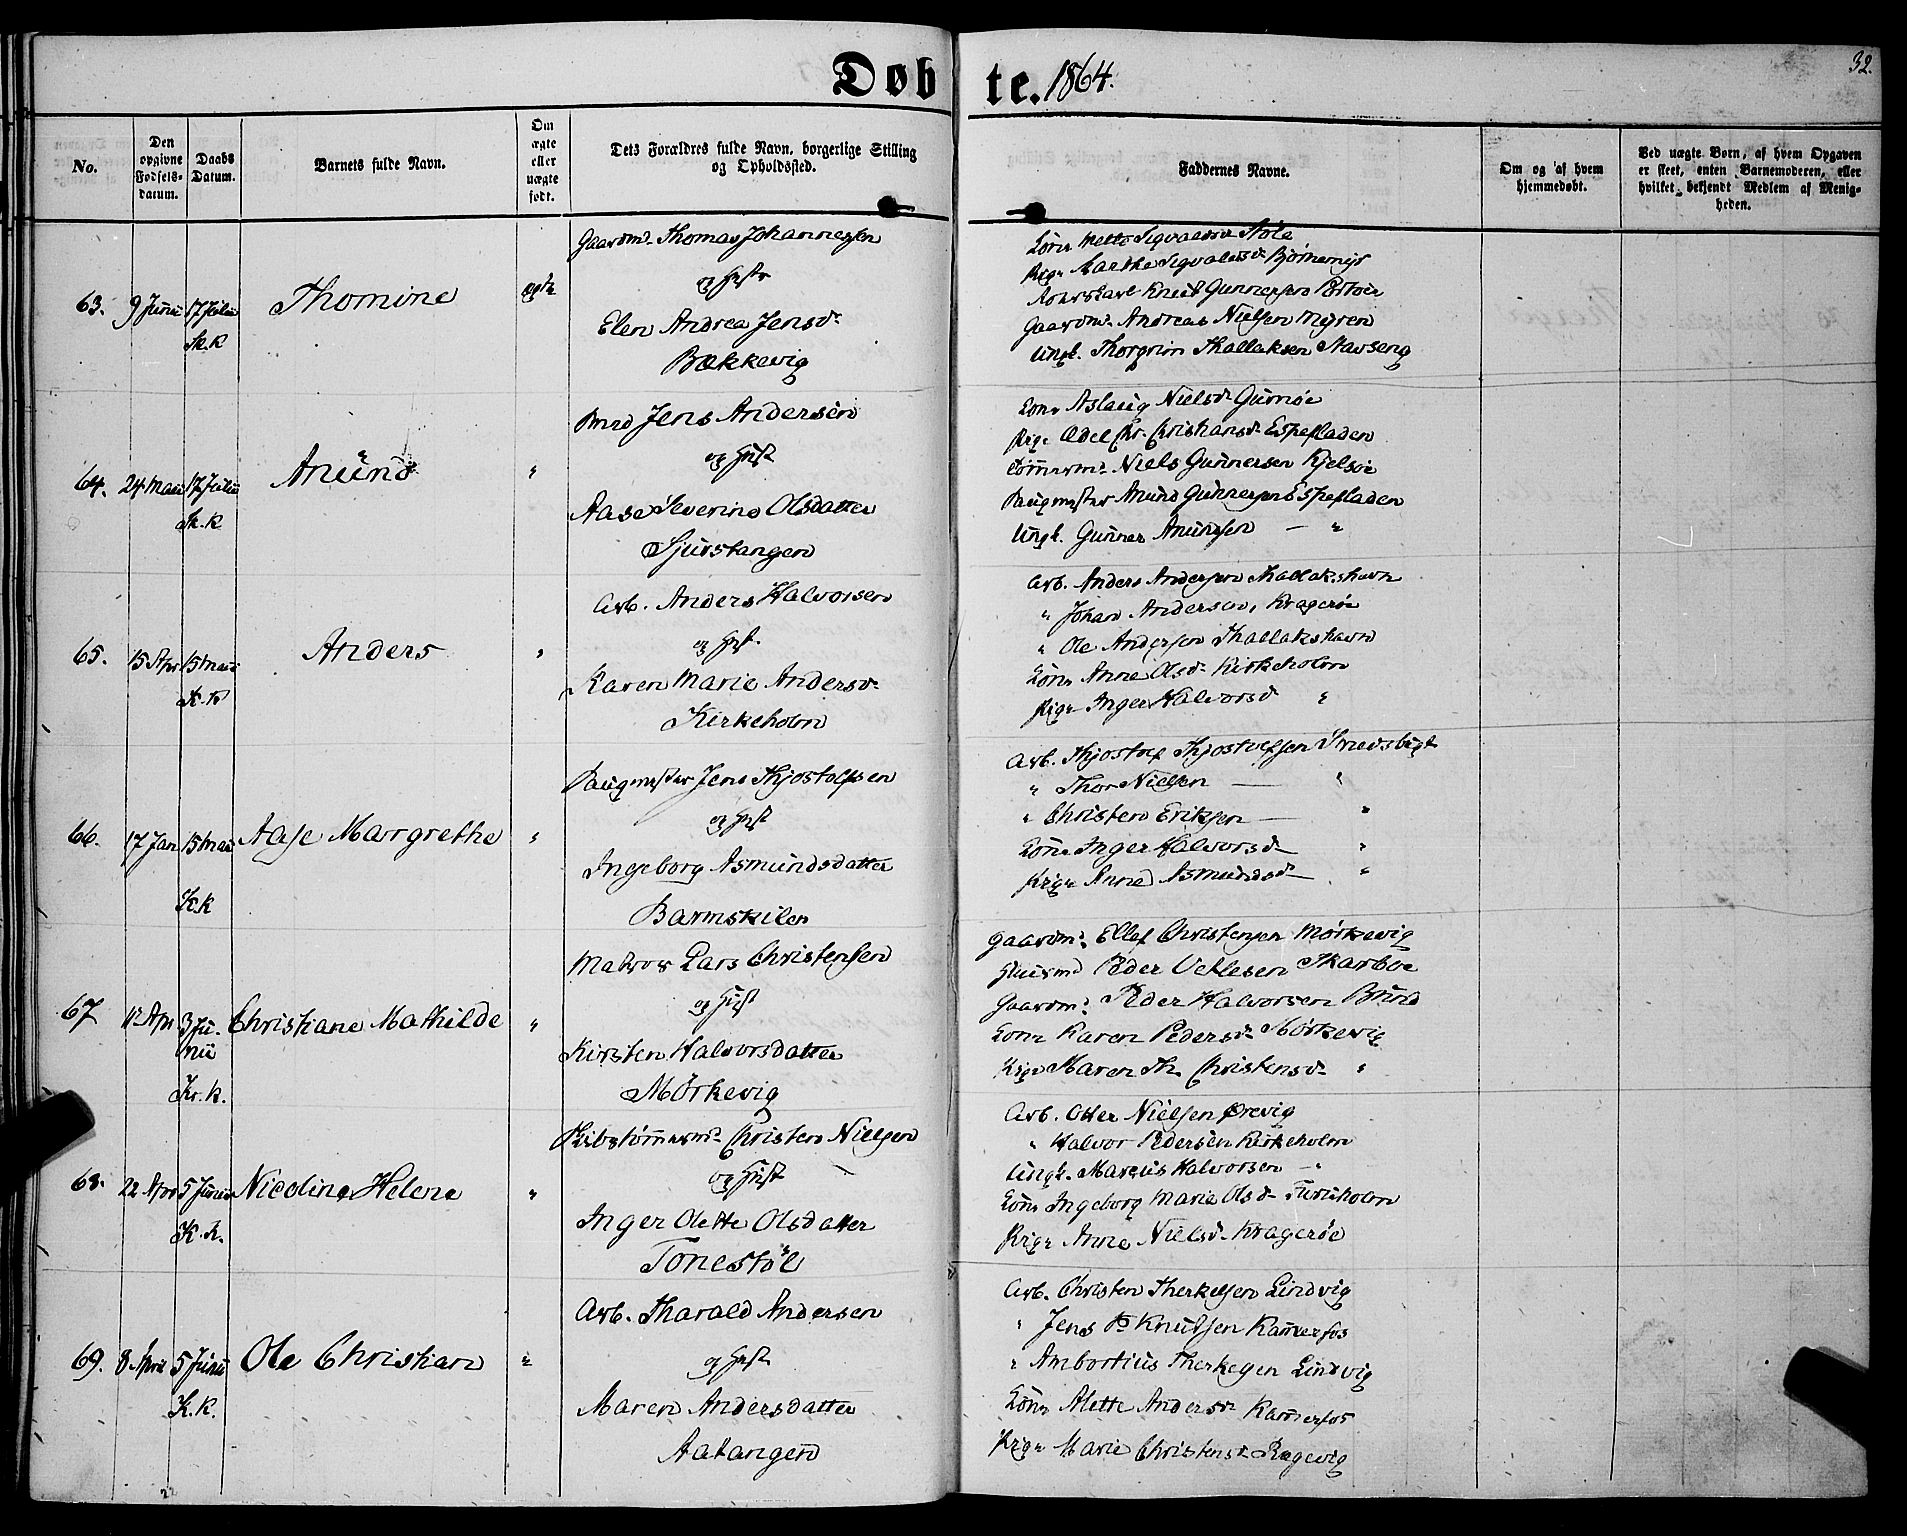 Døbte. 1864.
32.
No.
Den opgivne Fødsels-datum.
Daabs Datum.
Barnets fulde Navn.
Om ægte eller uægte født.
Dets Forældres fulde Navn, borgerlige Stilling og Opholdssted.
Faddernes Navne.
Om og af hvem hjemmedøbt.
Ved uægte Born, af hvem Opgaven er skeet, enten Barnemoderen, eller hvilket bekjendt Medlem af Menigheden.
63. 9 Junii 17 Julii
Sk. K
Thomine
ægte
Gaardmd. Thomas Johannessen
og Hustr
Elen Andrea Jensdr.
Bækkevig
Marthe Sigvaldsdr
Knut Gunnersen
Gaardmd. Andreas Nielsen Myren
Ungk. Thorgrim Thallaksen Stavseng
64. 24 Maii 17 Julii
Sk. K
Anund
"
Jens Andersen
og Hust
Aase Severine Olsdatter
Sjurstangen
Kone Aslaug Nielsdr Gumøe
Pige Edel Chr. Christiansdr Espefladen
Tømmermd. Niels Gunnersen Kjelsøe
Baugmester Anund Gunnersen Espefladen
Ungk. Gunner Anundsen — "
65. 15 Apr 15 Maii
K. K
Anders
"
Arb. Anders Halvorsen
og Hust.
Karen Marie Andersdr.
Kirkeholm
Arb. Anders Andersen Thallakshavn
" Johan Andersen, Kragerøe
" Ole Andersen Thallakshavn
Kone Anne Olsdr Kirkeholm
Pige Inger Halvorsdr "
66. 17 Jan 15 Maii
K. K
Aase Margrethe
"
Baugmester Jens Thjostolfsen
og Hust
Ingeborg Asmundsdatter
Barmskilen
Arb. Thjostolf Thjostolfsen Smedsbugt
" Thor Nielsen — "
" Christen Eriksen — "
Kone Inger Halvorsdr "
Pige Anne Asmundsdr "
67 11 Apr 3 Junii
Kr. K.
Christiane Mathilde
"
Matros Lars Christensen
og Hust
Kirsten Halvorsdatter
Mörkevig
Gaardmd. Ellef Christensen Mörkevig
Huusmd Peder Vetlesen Skarboe
Gaardmd. Peder Halvorsen Brund
Kone Karen Pedersdr Mörkevig
Pige Maren Th. Christensdr "
68. 22 Apr 5 Junii
K. K.
Nicoline Helene
"
Skibstömmermd. Christen Nielsen
og Hust
Inger Olette Olsdatter
Tonestöl
Arb. Otter Nielsen Ørevig
" Halvor Pedersen Kirkeholm
Ungk. Marcus Halvorsen — "
Kone Ingeborg Marie Olsdr Furuholm
Pige Anne Nielsdr Kragerøe
69. 8 April 5 Junii
K. K.
Ole Christian
"
Arb. Tharald Andersen
og Hust
Maren Andersdatter
Aatangen
Arb. Christen Therkelsen Lindvig
" Jens P. Knutsen Kammerfos
" Ambortius Therkelsen Lindvig
Kone Alette Andersdr Kammerfos
Pige Marie Christensdr Røgevig